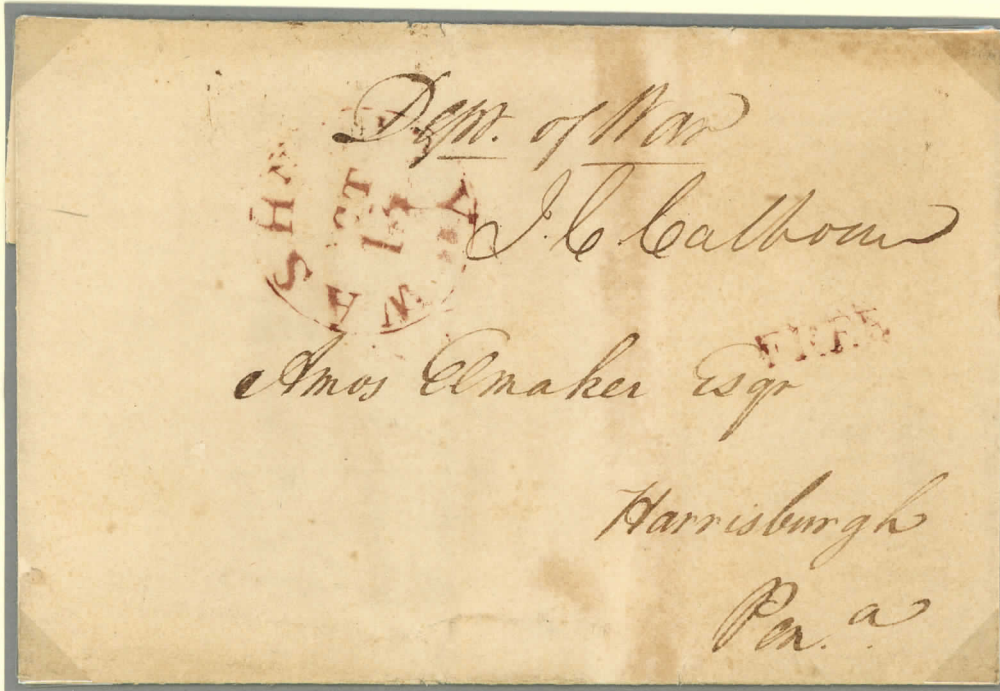 Dept. of War
J. C. Calhoun
WASH
OCT
FREE
Amos Elmaker Esqr
Harrisburgh
Pen.a